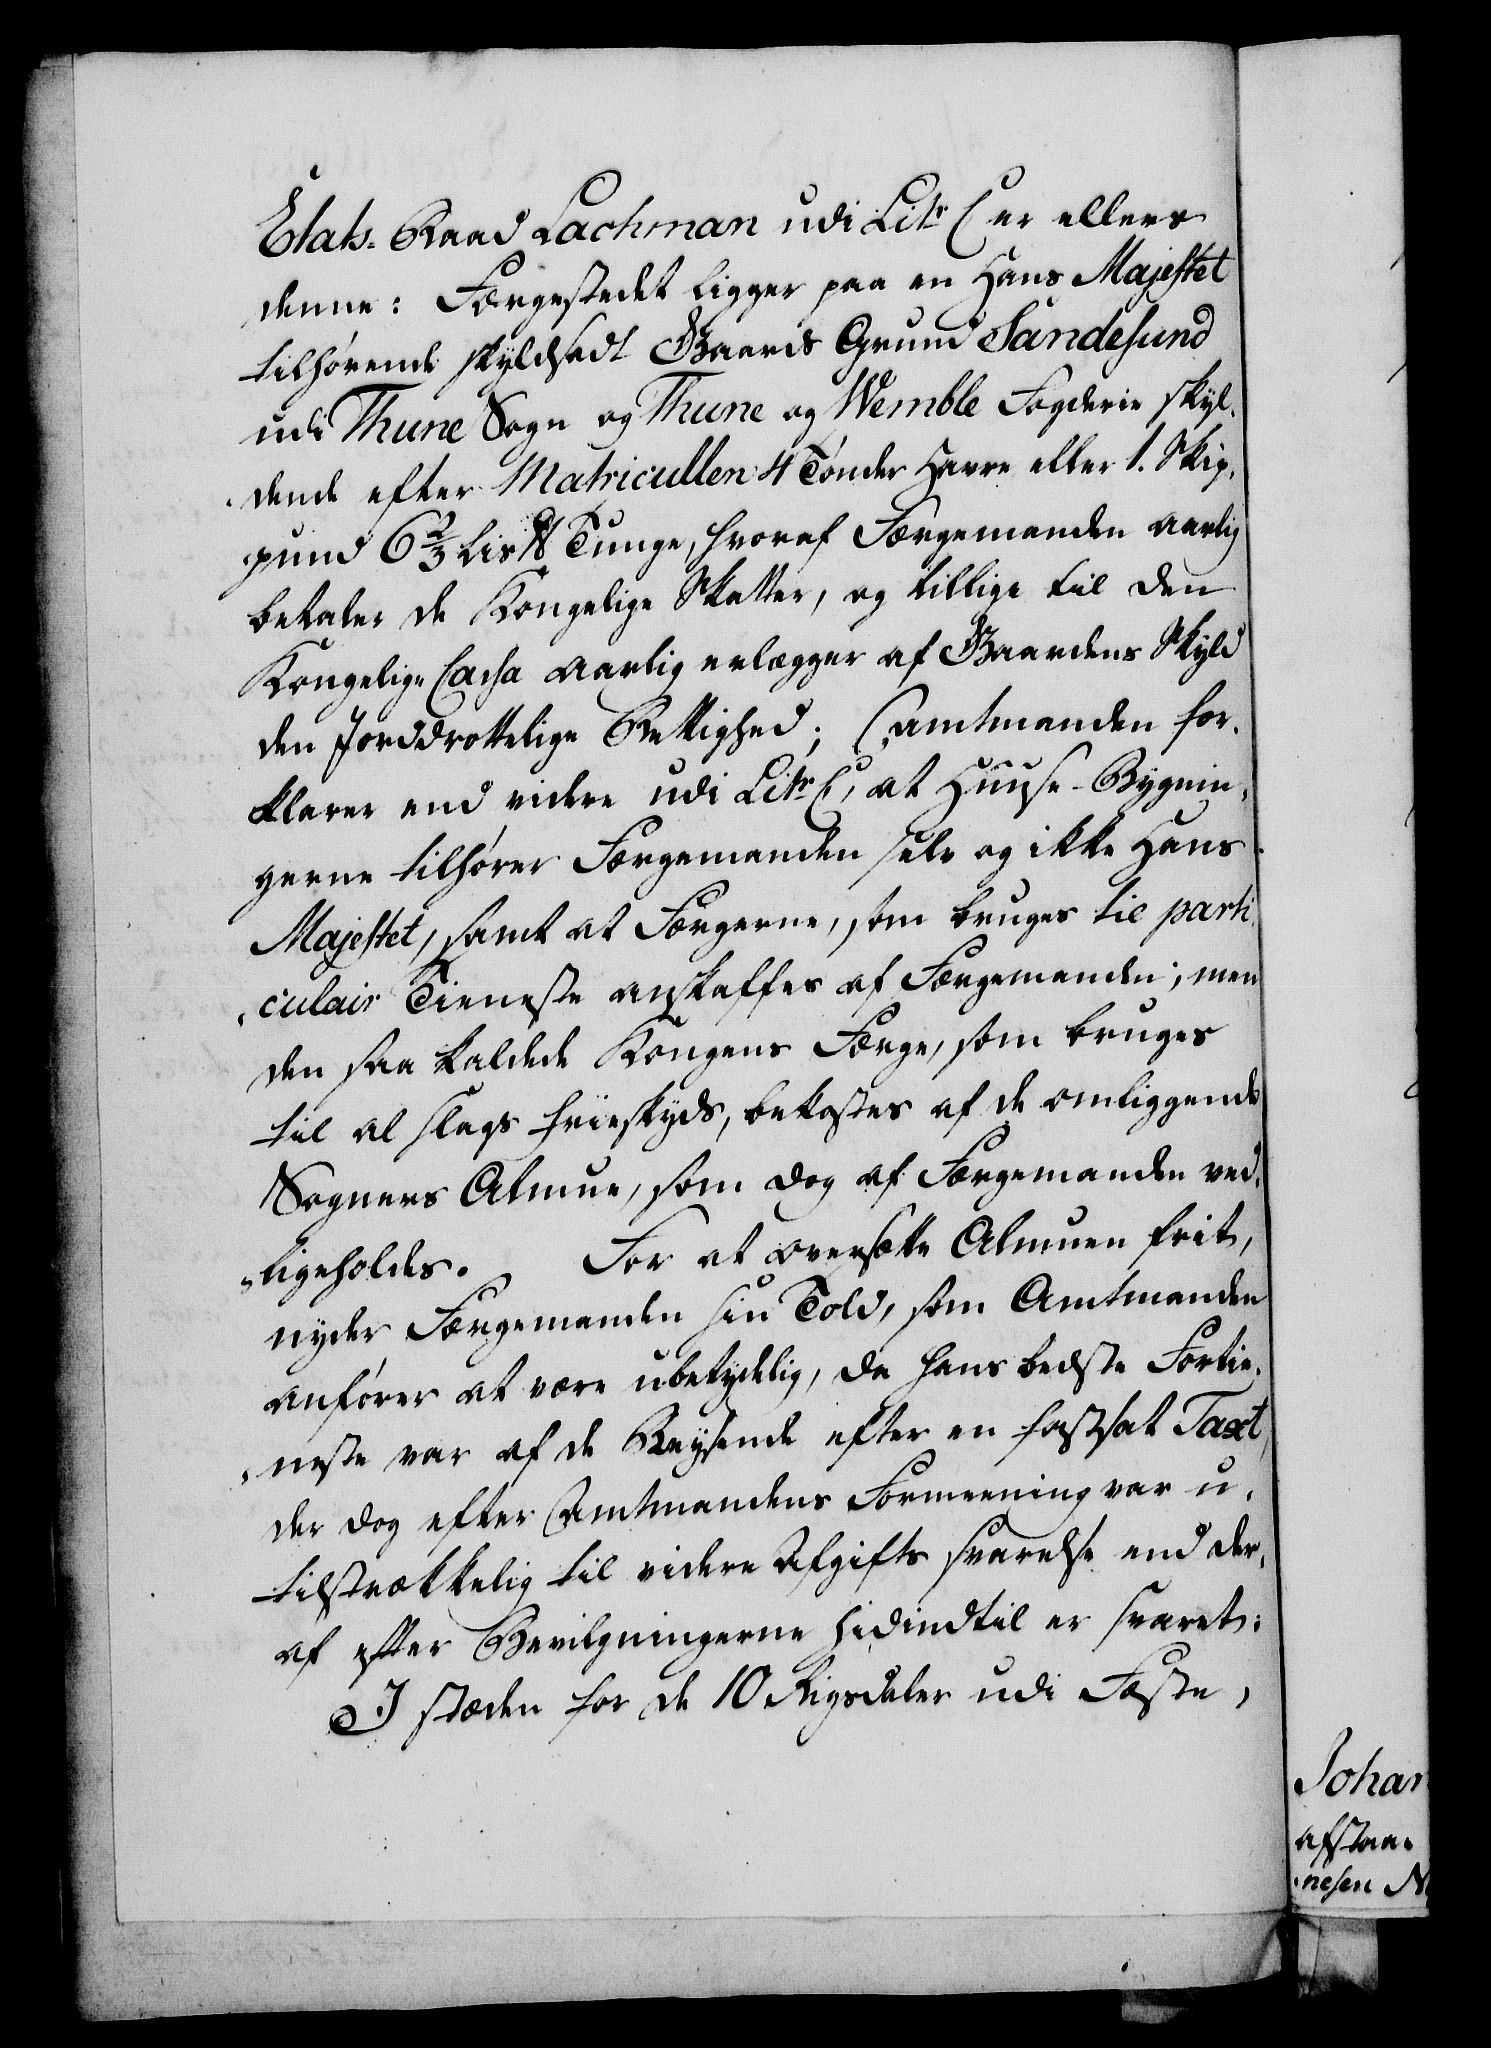 Etats-Raad Lachman udi Litr C er ellers
denne: Færgestedet ligger paa en Hans Majestet
tilhørende skyldsadt Gaards Grund Sandesund
udi Thune Sogn og Thune og Wemble Fogderie skyl-
dende efter Matricullen 4 Tønder Havre eller 1. Skip-
pund 6 2/3 Lis℔ Tunge, hvoraf Færgemanden aarlig
betaler de Kongelige Skatter, og tillige til den
Kongelige Cassa aarlig erlægger af Gaardens Skyld
den Jorddrottelige Rettighed; Amtmanden for-
klarer end videre udi Litr C, at Huuse-Bygnin-
gerne tilhører Færgemanden selv og ikke Hans
Majestet, samt at Færgerne, som bruges til parti-
culair Tieneste anskaffes af Færgemanden; men
den saa kaldede Kongens Færge, som bruges
til al slags frieskyds, bekostes af de omliggende
Sogners Almue, som dog af Færgemanden ved-
ligeholdes. For at oversætte Almuen frit,
nyder Færgemanden sin Told, som Amtmanden
anfører at være ubetydelig, da hans bedste Fortie-
neste var af de Reysende efter en fastsat Taxt,
der dog efter Amtmandens Formeening var u-
tilstrækkelig til videre Afgifts svarelse end der-
af efter Bevilgningerne hidindtil er svaret:
I stæden for de 10 Rigsdaler udi Fæste,
Johan
afstaa-
nesen N